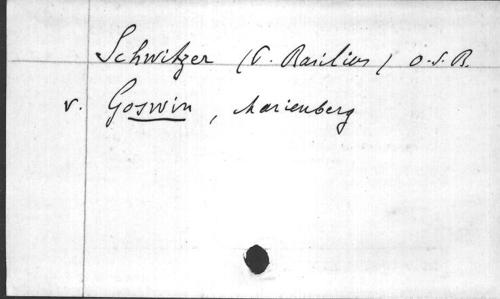 Schwitzer (P. Basilius) O.S.B.
v. Goswin, Marienberg